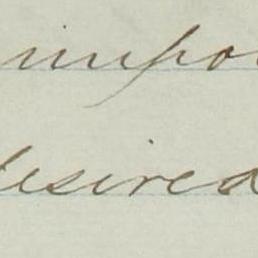 impo
desired